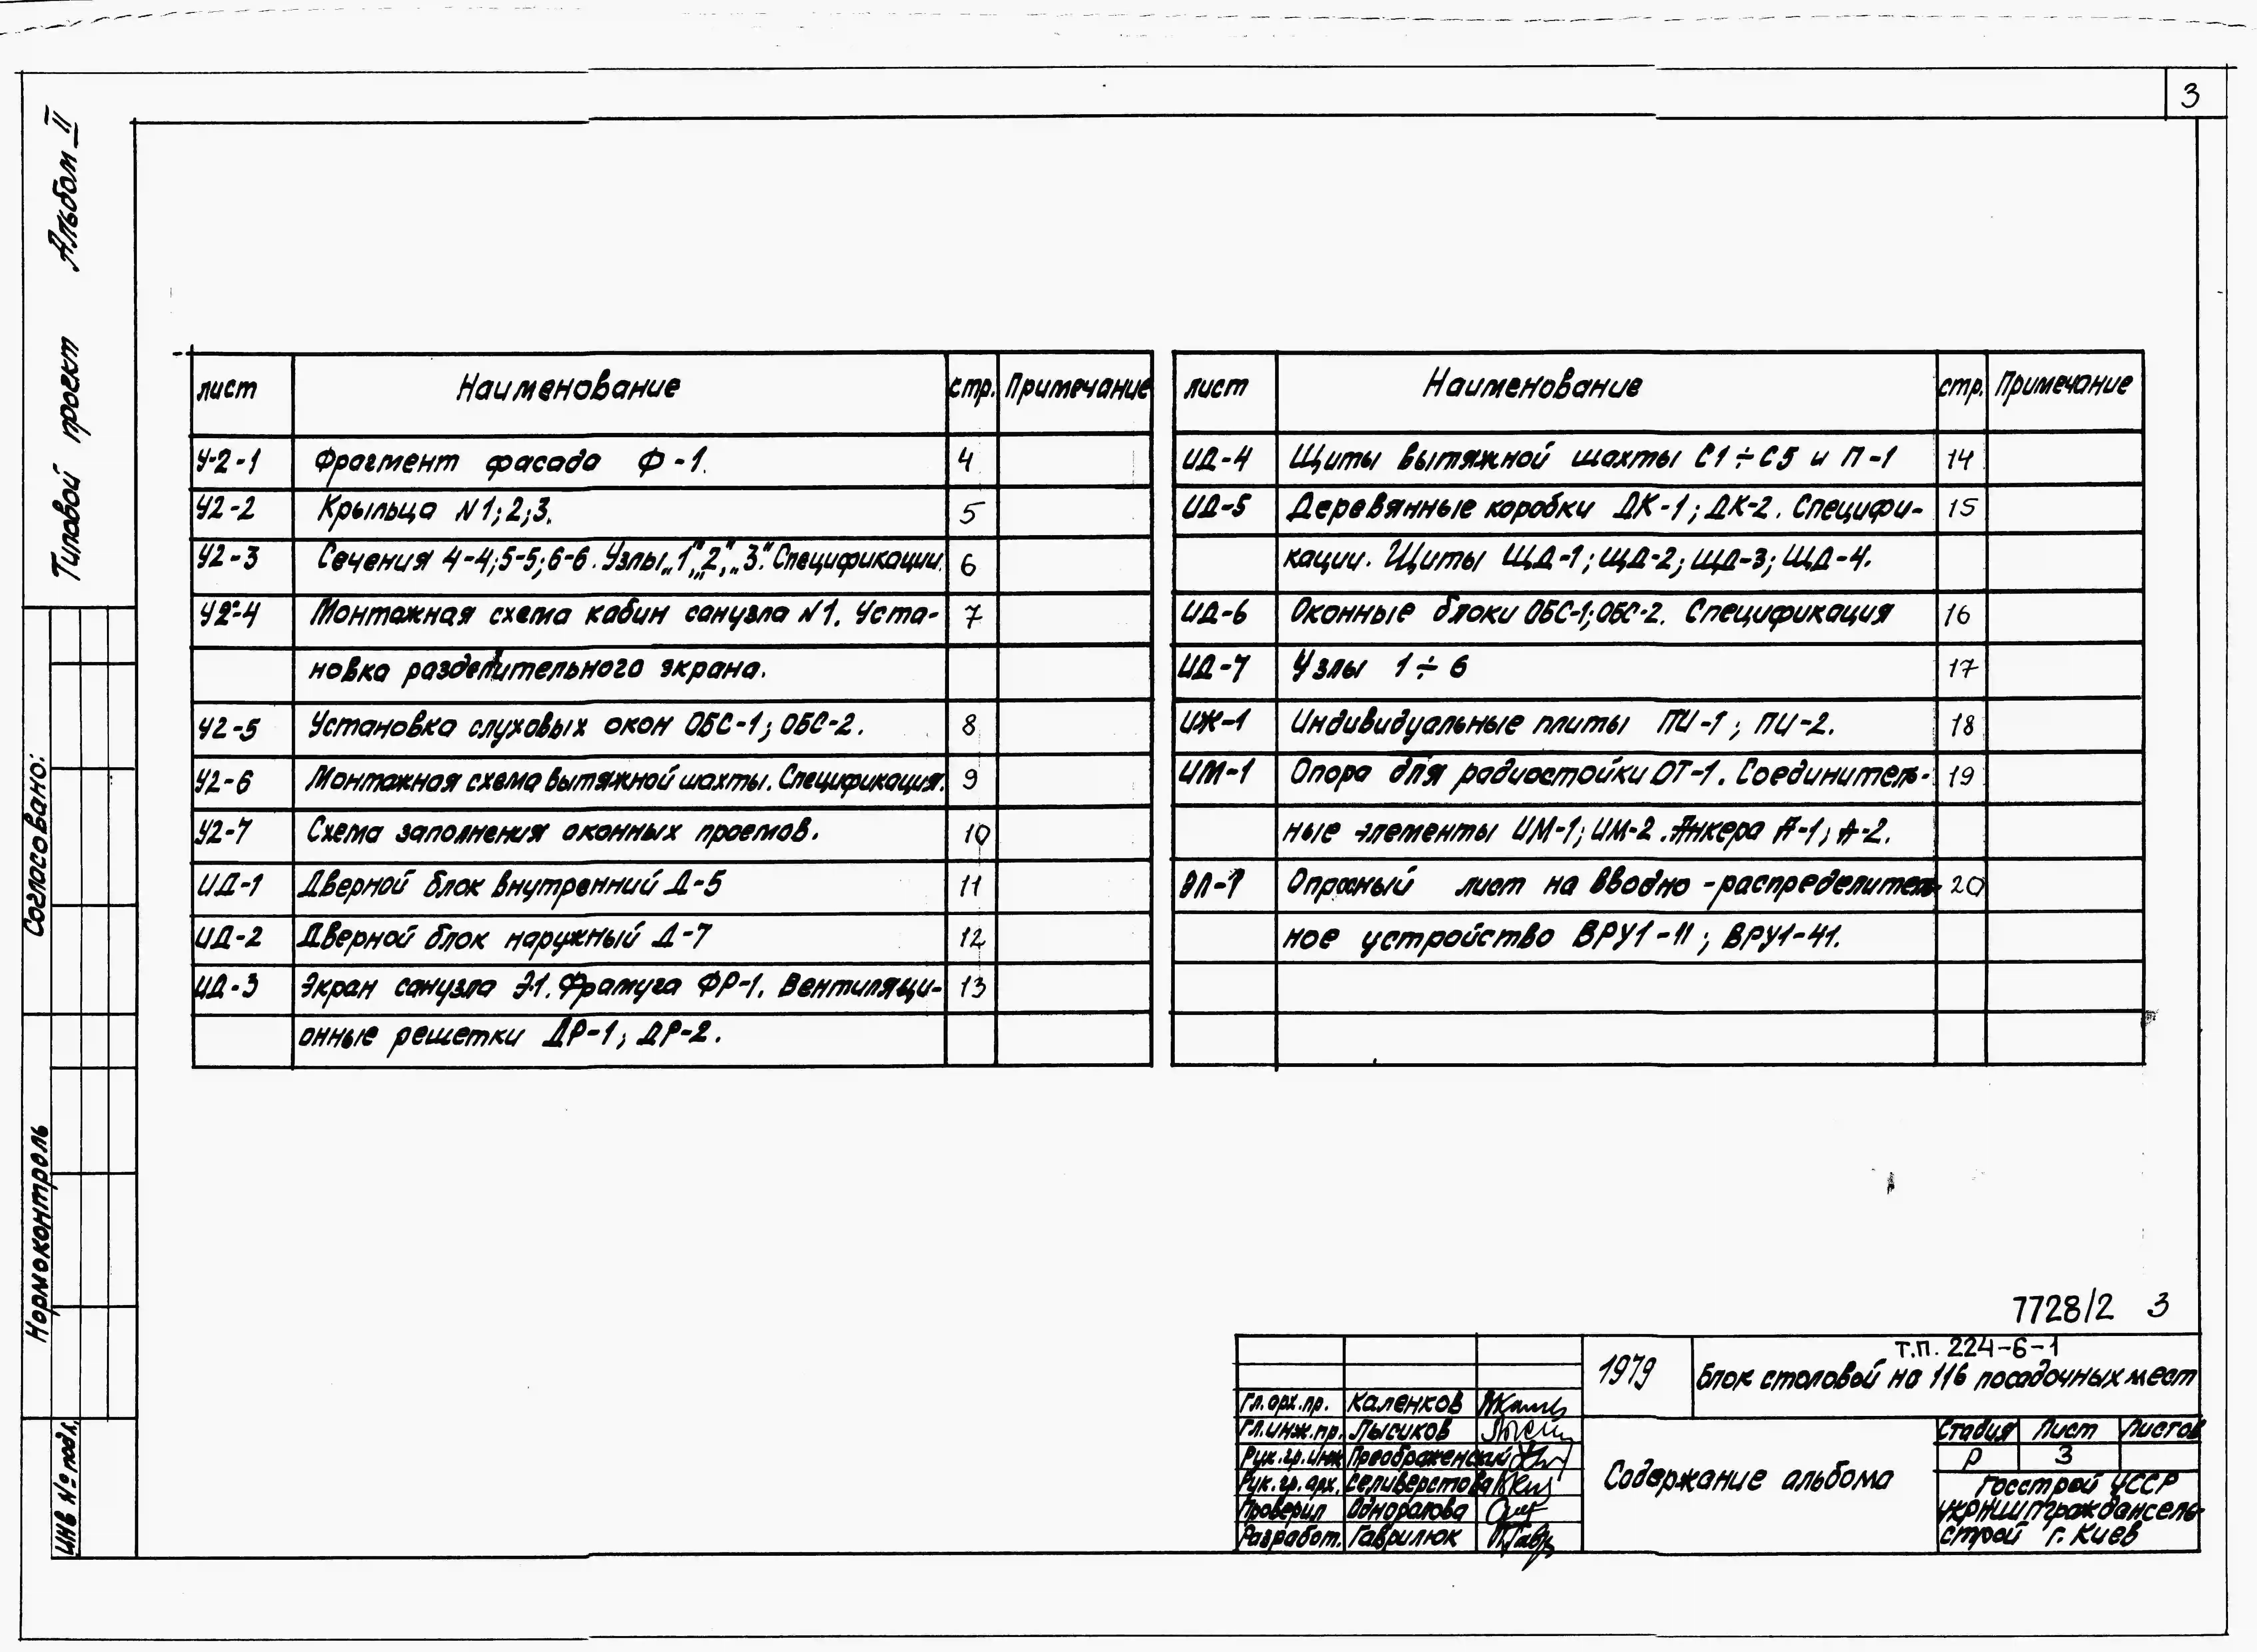 3
Альбом II
Типовой проект
Согласовано:
Нормоконтроль
ИНВ № подл.
лист Наименование стр. Примечание
У-2-1 Фрагмент фасада Ф-1. 4
У2-2 Крыльца N1;2;3. 5
У2-3 Сечения 4-4;5-5;6-6. Узлы „1”, „2”, „3”. Спецификации. 6
У2-4 Монтажная схема кабин санузла N1. Уста- 7
новка разделительного экрана.
У2-5 Установка слуховых окон ОБС-1; ОБС-2. 8
У2-6 Монтажная схема вытяжной шахты. Спецификация. 9
У2-7 Схема заполнения оконных проемов. 10
ИД-1 Дверной блок внутренний Д-5 11
ИД-2 Дверной блок наружный Д-7 12
ИД-3 Экран санузла Э-1. Фрамуга ФР-1. Вентиляци- 13
онные решетки ДР-1; ДР-2.
лист Наименование стр. Примечание
ИД-4 Щиты вытяжной шахты С1÷С5 и П-1 14
ИД-5 Деревянные коробки ДК-1; ДК-2. Специфи- 15
кации. Щиты ЩД-1; ЩД-2; ЩД-3; ЩД-4.
ИД-6 Оконные блоки ОБС-1; ОБС-2. Спецификация 16
ИД-7 Узлы 1÷6 17
ИЖ-1 Индивидуальные плиты ПИ-1; ПИ-2. 18
ИМ-1 Опора для радиостойки ОТ-1. Соединитель- 19
ные элементы ИМ-1; ИМ-2. Анкера А-1; А-2.
ОЛ-1 Опросный лист на вводно-распределитель- 20
ное устройство ВРУ1-11; ВРУ1-41.
7728/2 3
1979
Т.П. 224-6-1
Блок столовой на 116 посадочных мест
Гл. арх. пр. Каленков
Гл. инж. пр. Лысиков
Рук. гр. инж Преображенский
Рук. гр. арх. Селиверстова
Проверил Одноралова
Разработ. Гаврилюк
Содержание альбома
Стадия Лист Листов
Р 3
Госстрой УССР
УкрНИИПграждансель-
строй г. Киев